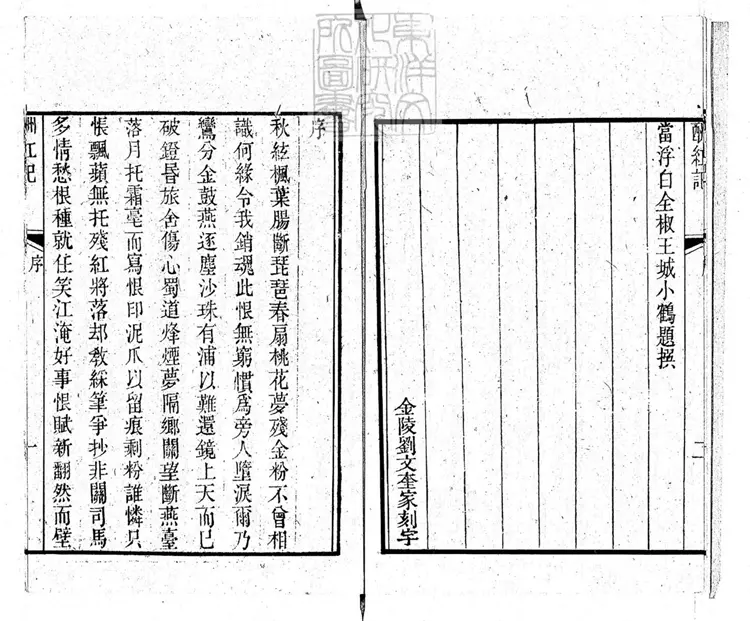 酬紅記
當浮白全椒王城小鶴題撰
二
金陵劉文奎家刻字
東洋文化研究所圖書
序
秋絃楓葉腸斷琵琶春扇桃花夢殘金粉不曾相
識何緣令我銷魂此恨無窮慣為旁人墮淚爾乃
鸞分金鼓燕逐塵沙珠有浦以難還鏡上天而已
破鐙昏旅舍傷心蜀道烽煙夢隔鄉關望斷燕臺
落月托霜毫而寫恨印泥爪以留痕剩粉誰憐只
悵飄蘋無托殘紅將落却教綵筆爭抄非關司馬
多情愁根種就任笑江淹好事恨賦新翻然而壁
酬紅記
序
一